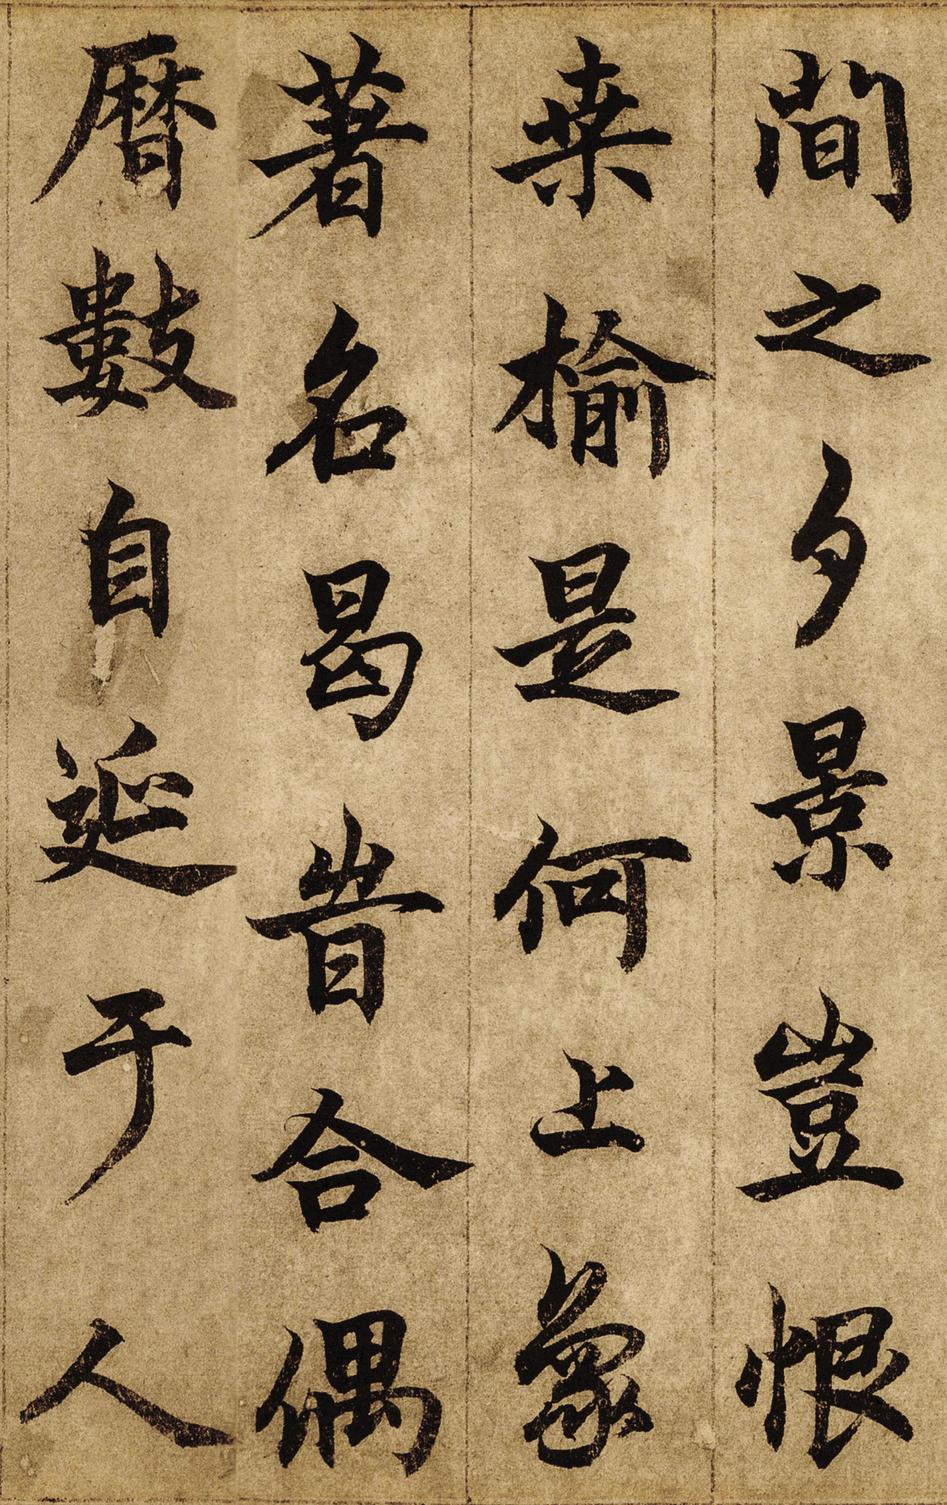 間之夕景豈恨
桒榆是何上象
著名曷旹合偶
曆數自延于人